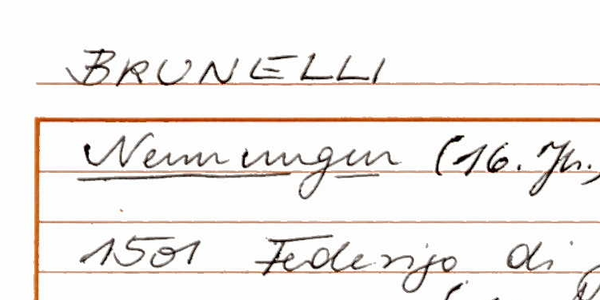 BRUNELLI
Nennungen (16. Jh.)
1501 Federigo di